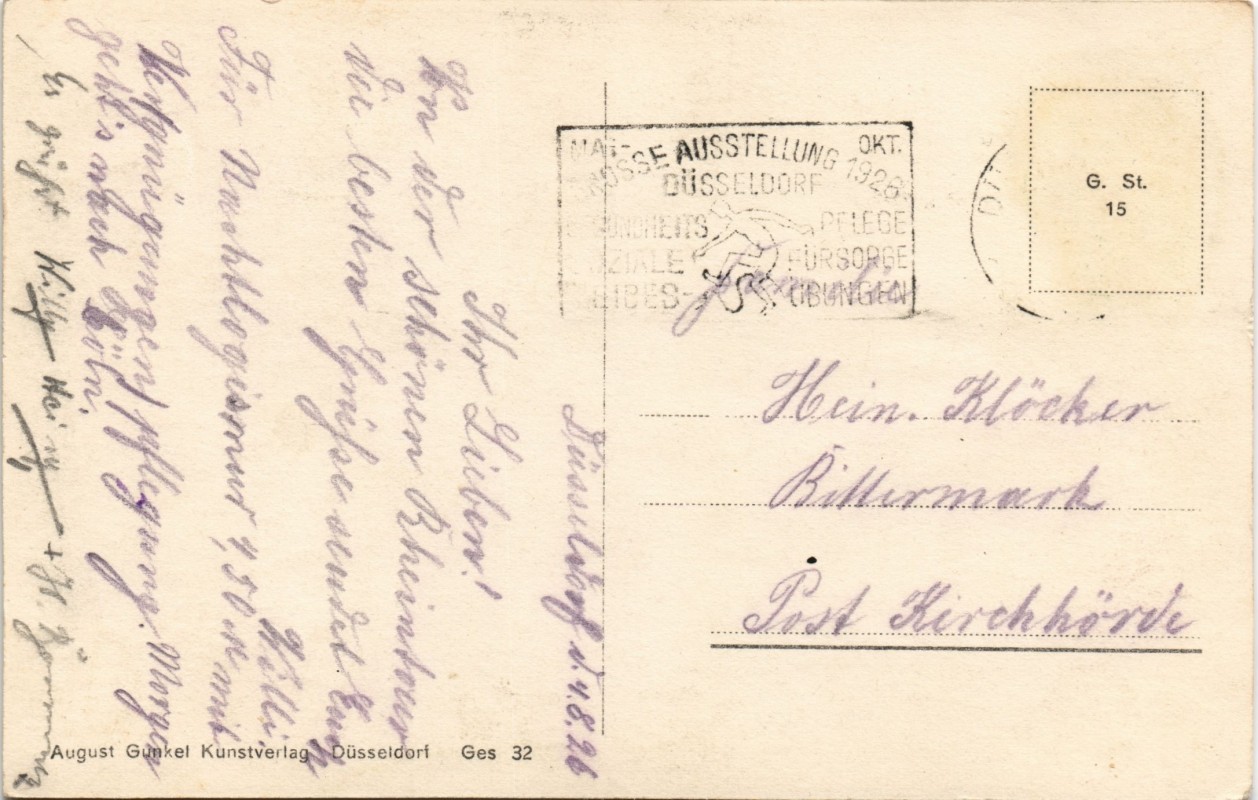 Düsseldorf d. 4.8.26
Ihr Lieben!
Von der schönen Rheintour
die besten Grüße sendet Euch
Willi.
Für Nachtlogis nur 4,50 m mit
Verpflegung. Morgen
geht's nach Köln.
Es grüßt Willy
MAI- OKT.
GROSSE AUSSTELLUNG 1926
DÜSSELDORF
GESUNDHEITS PFLEGE
SOZIALE FÜRSORGE
LEIBES- ÜBUNGEN
G. St.
15
Familie
Hein. Klöcker
Bittermark
Post Kirchhörde
August Gunkel Kunstverlag Düsseldorf Ges 32